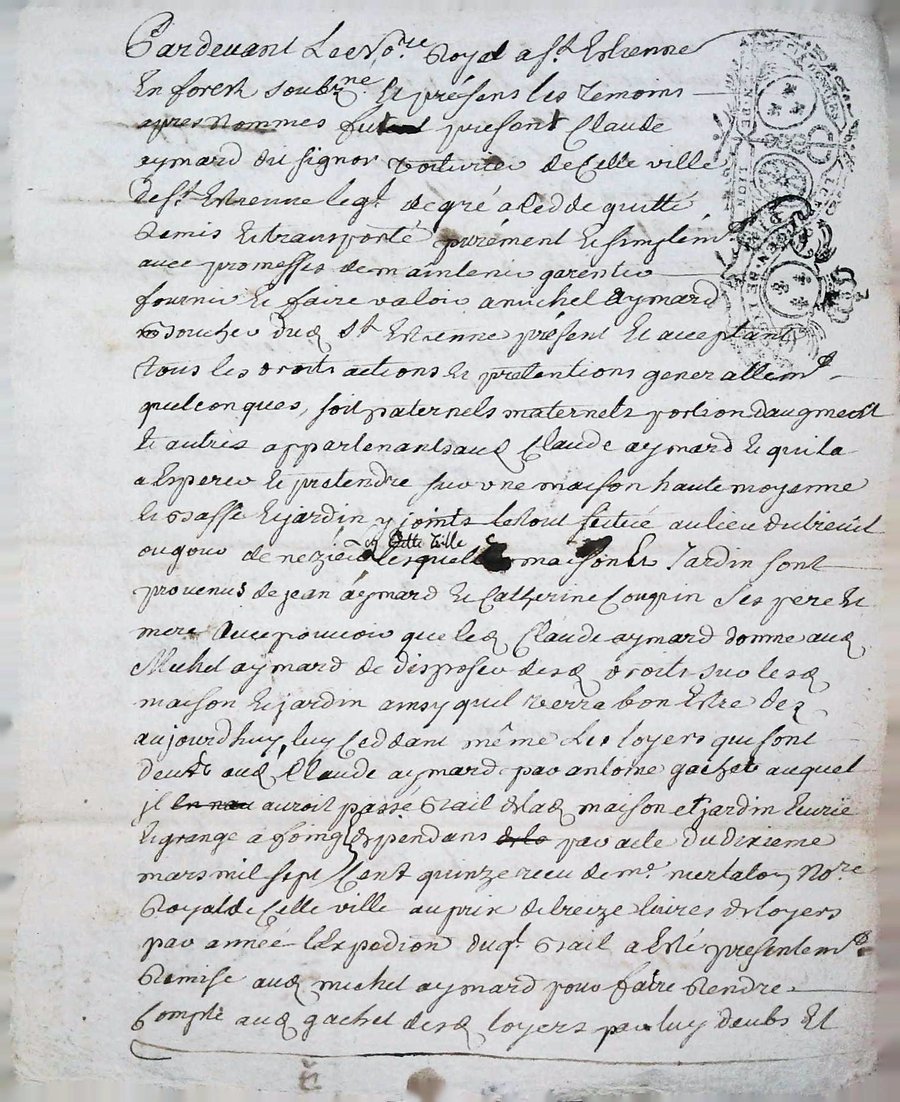 Pardevant Le No.re Royal a S.t Estienne
En forest soubz.ne Et présens les temoins
apres nommes fut present Claude
aymard du signor voiturier de Celle ville
de S.t Estienne leq.l de gré a Cedde quitté
Remis Et transporté purement Et simplem.t
avec promesses de maintenir garentir
fournir Et faire valoir a michel Aymard
dud S.t Estienne présent Et acceptant
tous les droits actions Et pretentions generallem.t
quelconques, soit paternels maternels portion daugment
Et autres appartenants aud Claude aymard Et quil a
a Esperer Et pretendre sur une maison haute moyenne
Et basse Et jardin y joints le tout scitué au lieu du breuil
ou gour de en Cette Ville maison Et Jardin sont
provenus de jean aymard Et Catherine Couquin ses pere Et
mere avec pouvoir que led Claude aymard donne aud
Michel aymard de disposer desd droits sur lesd
maison Et jardin ainsy quil verra bon Estre dez
aujourdhuy, luy Ceddant même Les loyers qui sont
deubs aud Claude aymard par antoine gachet auquel
jl auroit passé Bail de lad maison et jardin Ecurie
Et grange a foing dependans par acte du dixieme
mars mil sept Cent quinze receu de m.e No.re
Royal de Celle ville au prix de treize livres de loyers
par année LExpedion dud.t Bail a Esté presentem.t
Remise aud michel aymard pour faire Rendre
Compte aud gachet desd loyers par luy deubs Et